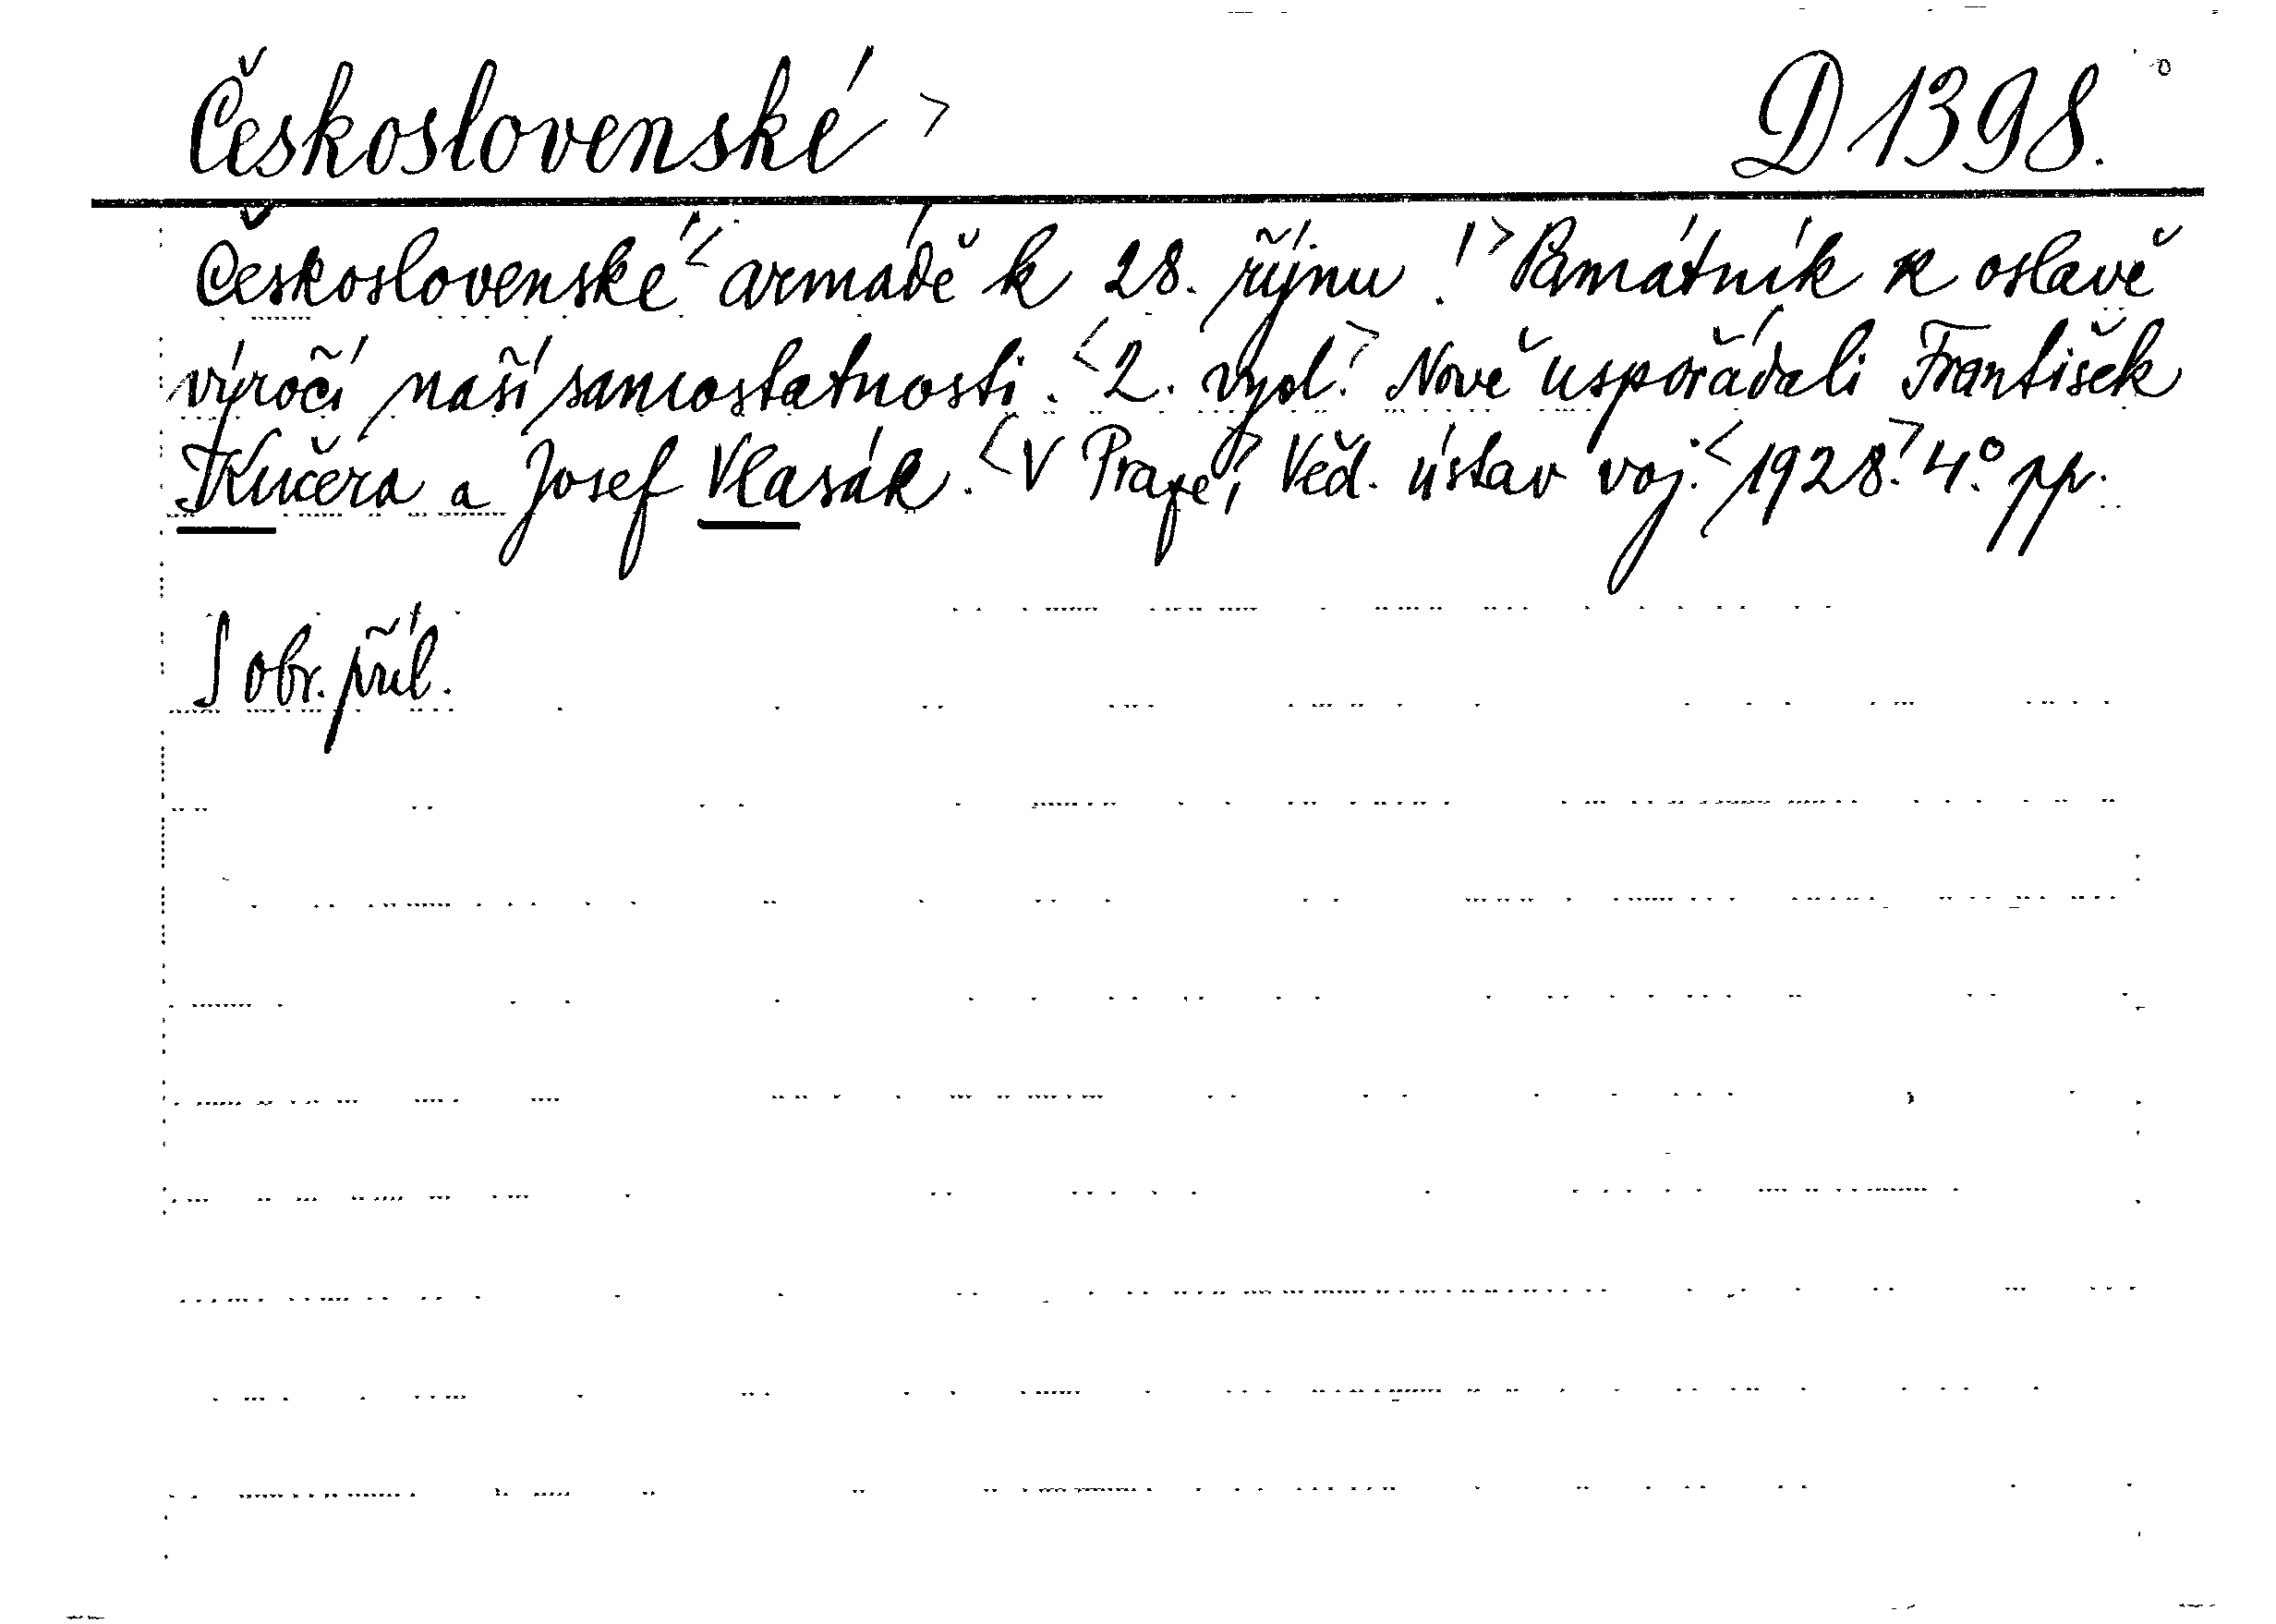 Československé > D 1398.
Československé < armádě k 28. říjnu ! > Památník k oslavě
víročí naší samostatnosti. < 2. vyd. > Nově uspořádali František
Kučera a Josef Vlasák. < V Praze, > Věd. ústav voj. < 1928. > 4.° pp.
S obr. příl.